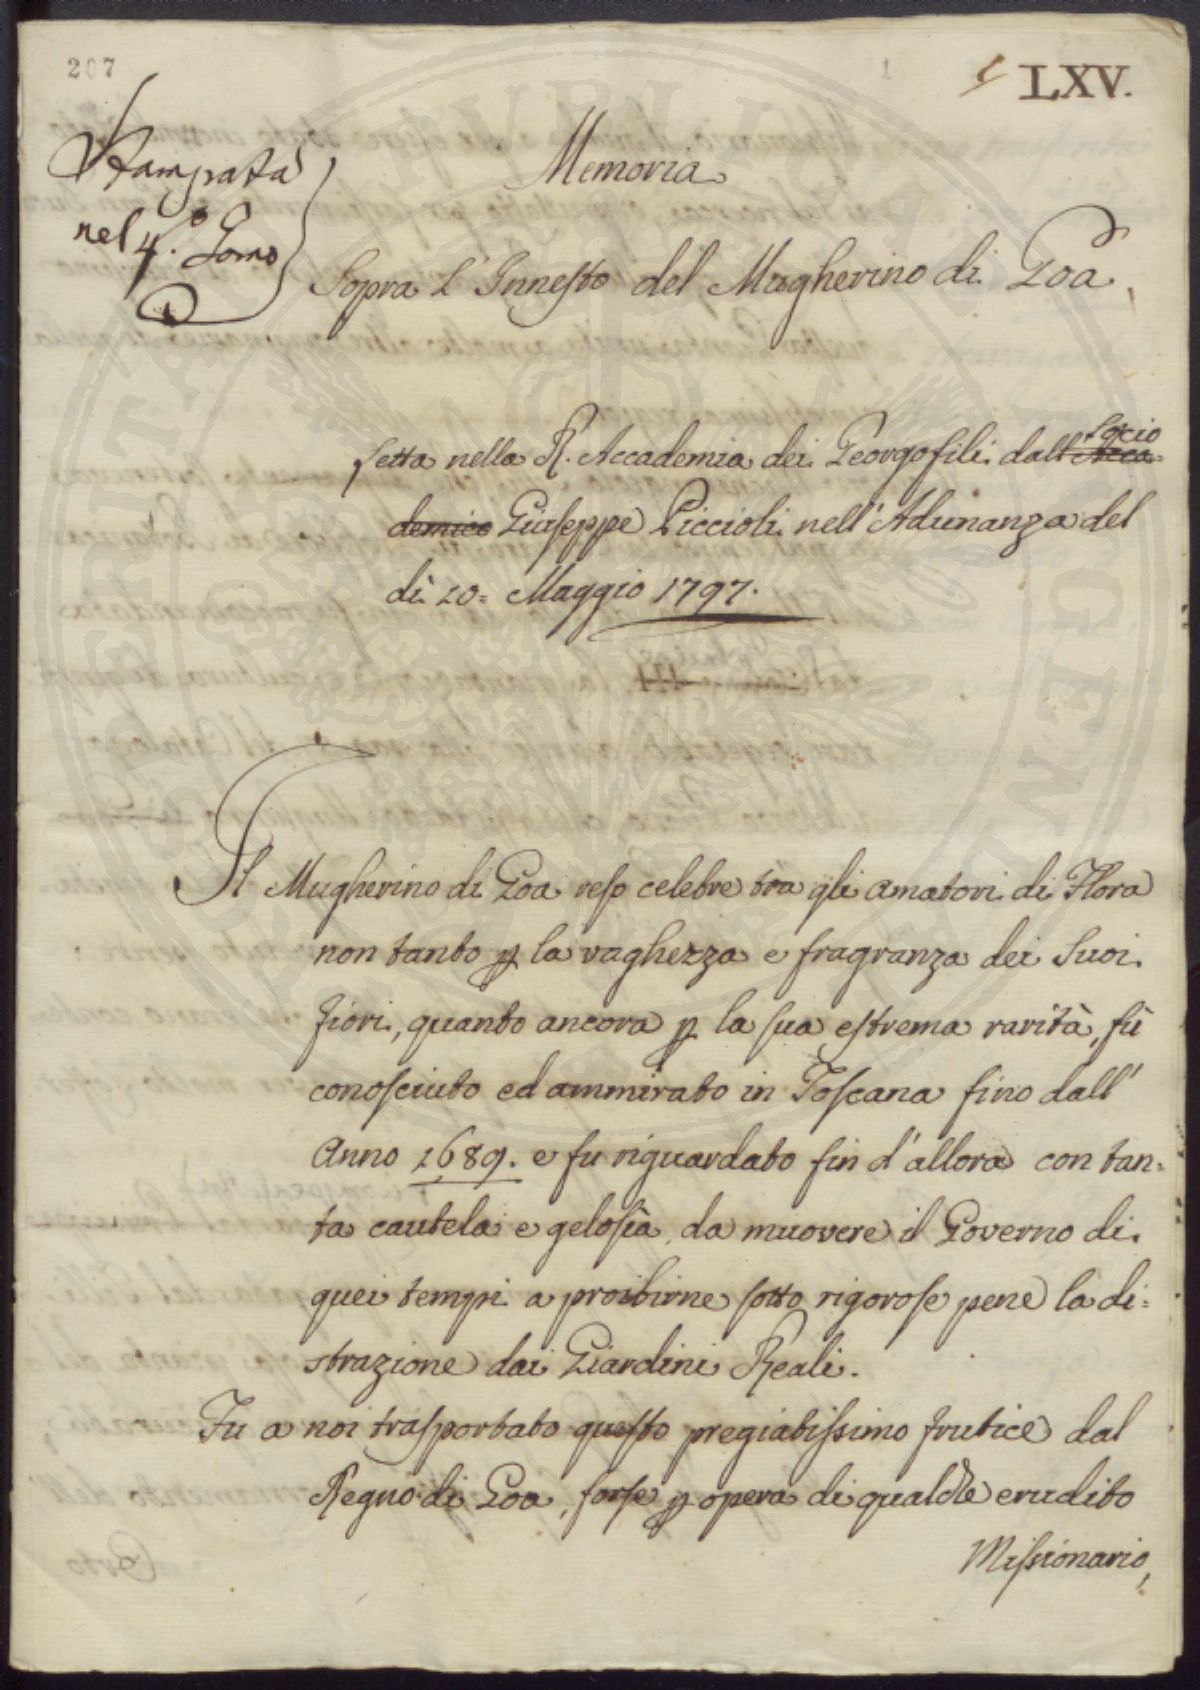 207
1
LXV.
Stampata
nel 4.º Tomo
Memoria
Sopra l'Innesto del Mugherino di Goa,
Letta nella R. Accademia dei Georgofili dall' Acca=
Socio
demico Giuseppe Piccioli nell'Adunanza del
dì 20= Maggio 1797.
Il Mugherino di Goa reso celebre tra gli amatori di Flora
non tanto p la vaghezza e fragranza dei Suoi
fiori, quanto ancora p la sua estrema rarità, fù
conosciuto ed ammirato in Toscana fino dall'
Anno 1689. e fu riguardato fin d'allora con tan=
ta cautela e gelosìa, da muovere il Governo di
quei tempi a proibirne sotto rigorose pene la di=
strazione dai Giardini Reali.
Fu a noi trasportato questo pregiatissimo frutice dal
Regno di Goa, forse p opera di qualche erudito
Missionario,